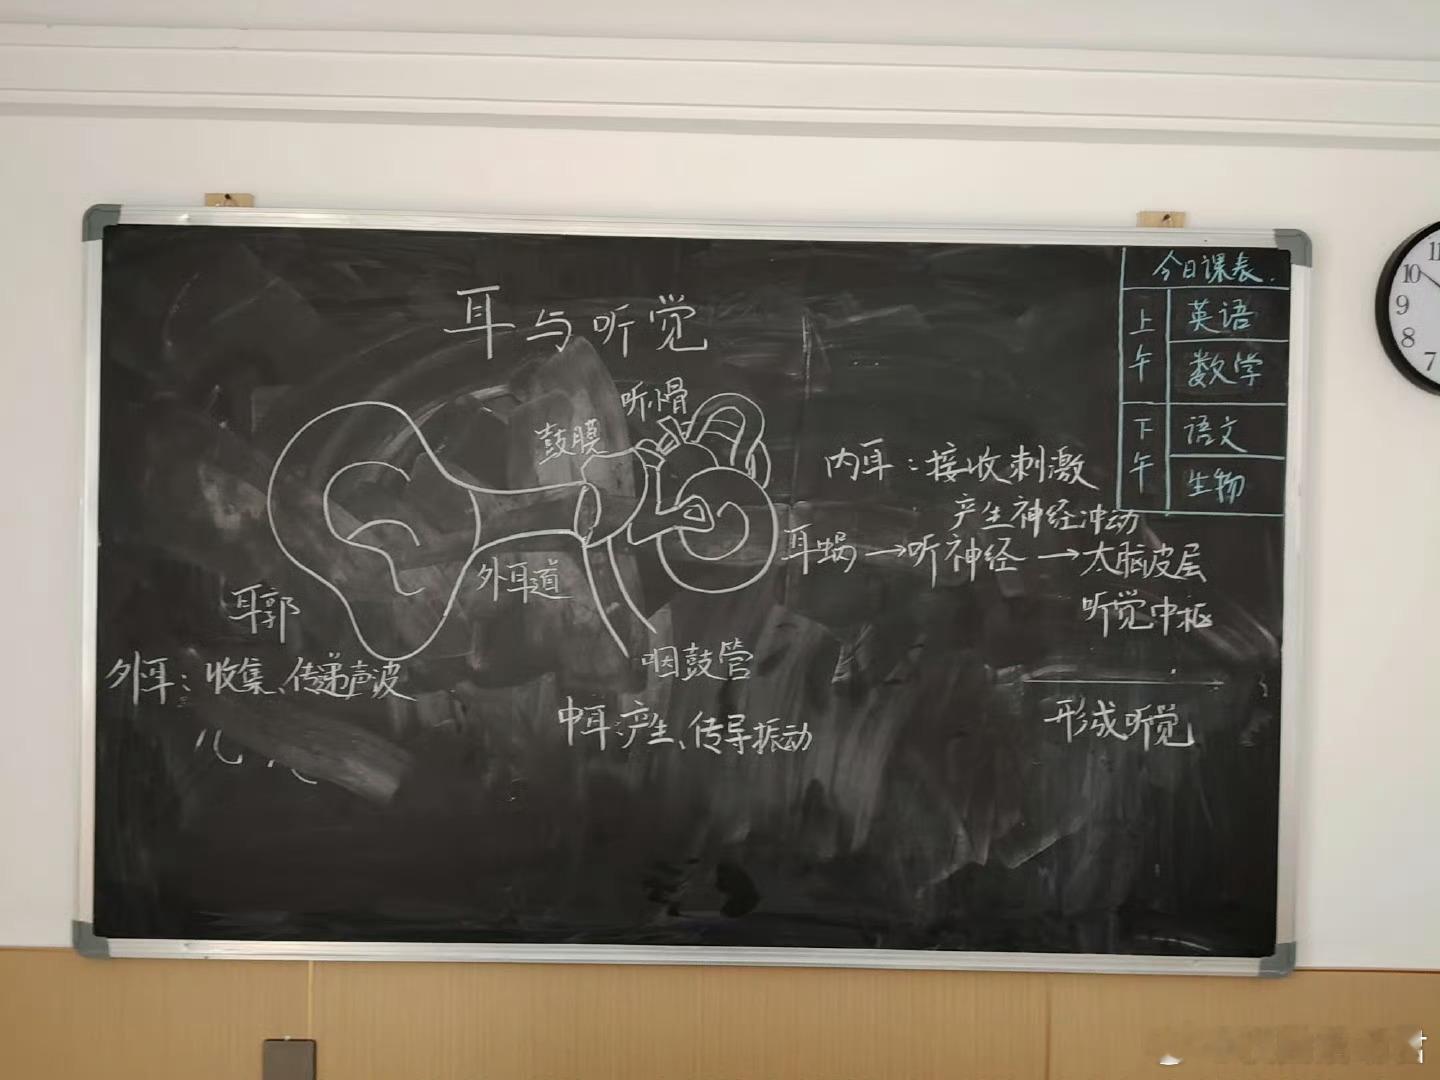 耳与听觉
听小骨
鼓膜
外耳道
耳郭
咽鼓管
外耳：收集、传递声波
中耳：产生、传导振动
内耳：接收刺激
产生神经冲动
耳蜗→听神经→大脑皮层
听觉中枢
形成听觉
今日课表
上午
英语
数学
下午
语文
生物
11
10
9
8
7